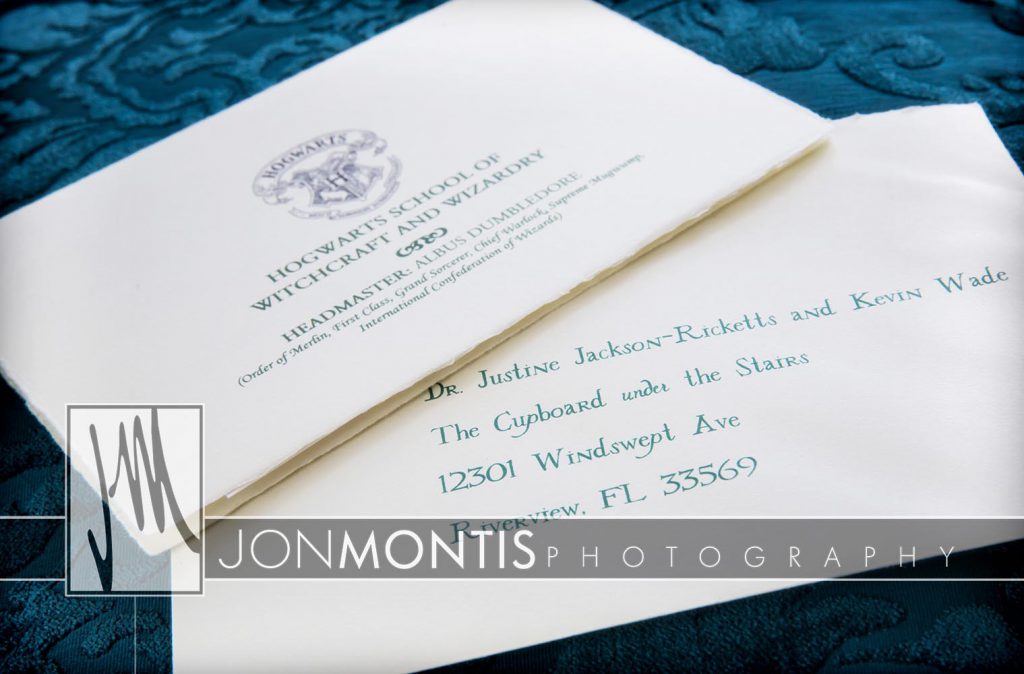 HOGWARTS
HOGWARTS SCHOOL OF
WITCHCRAFT AND WIZARDRY
HEADMASTER: ALBUS DUMBLEDORE
(Order of Merlin, First Class, Grand Sorcerer, Chief Warlock, Supreme Mugwump,
International Confederation of Wizards)
Dr. Justine Jackson-Ricketts and Kevin Wade
The Cupboard under the Stairs
12301 Windswept Ave
Riverview, FL 33569
JM
JONMONTIS PHOTOGRAPHY